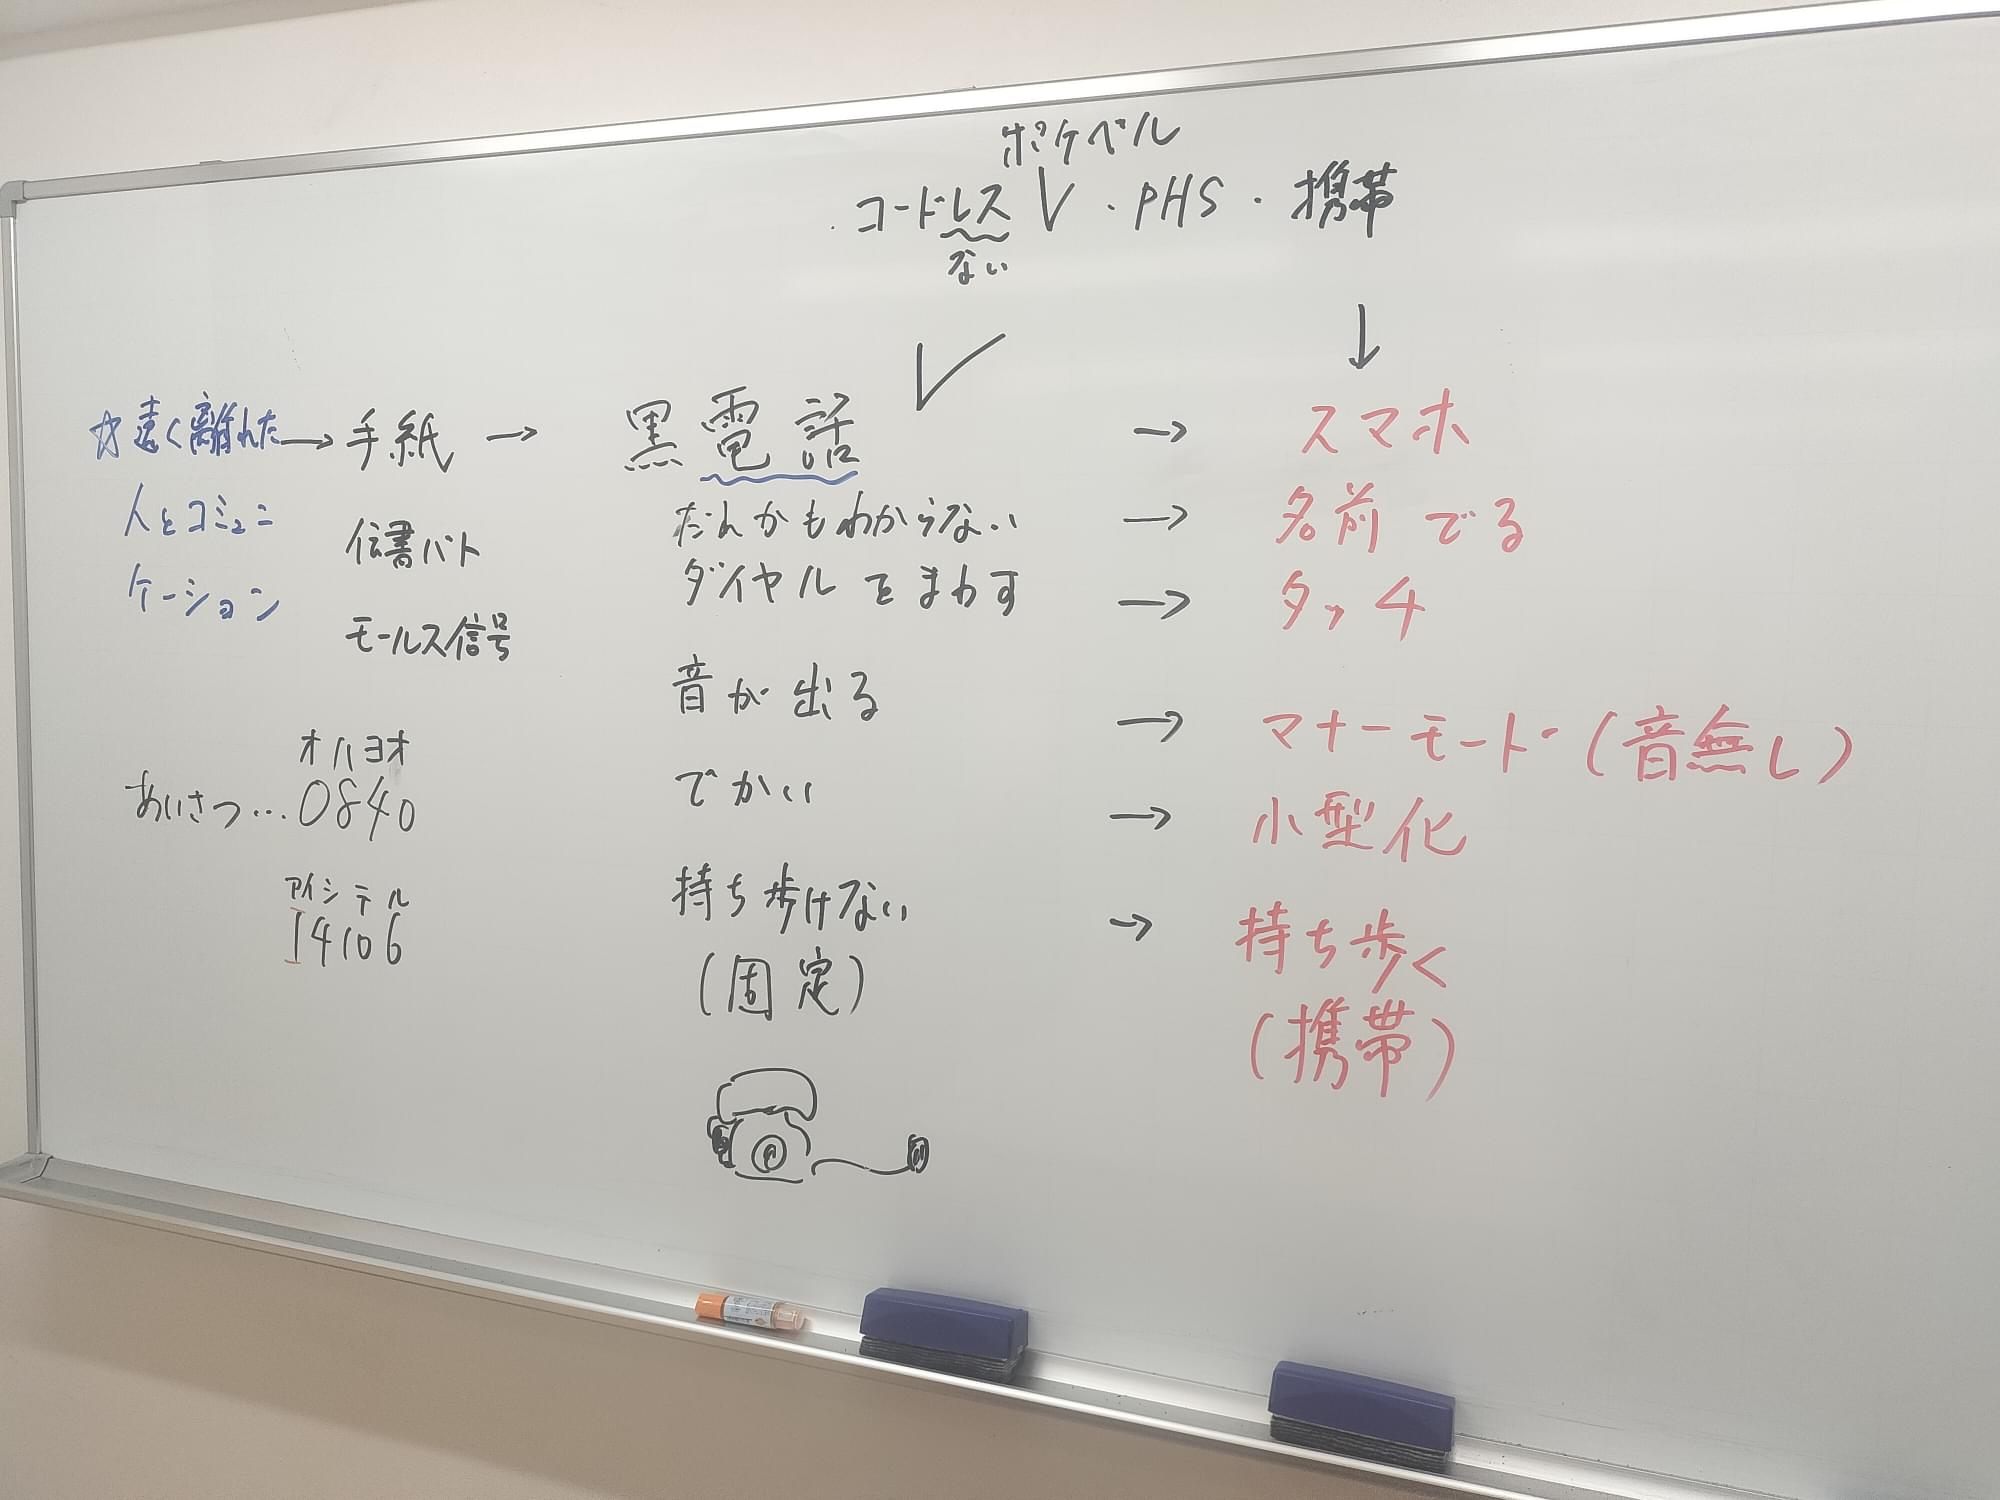 ポケベル
・コードレス V ・PHS・携帯
ない
☆遠く離れた→手紙→黒電話→スマホ
人とコミュニ
ケーション
伝書バト
モールス信号
だれかもわからない→名前でる
ダイヤルをまわす→タッチ
音が出る→マナーモード(音無し)
でかい→小型化
持ち歩けない→持ち歩く
(固定)
(携帯)
オハヨオ
あいさつ…0840
アイシテル
14106